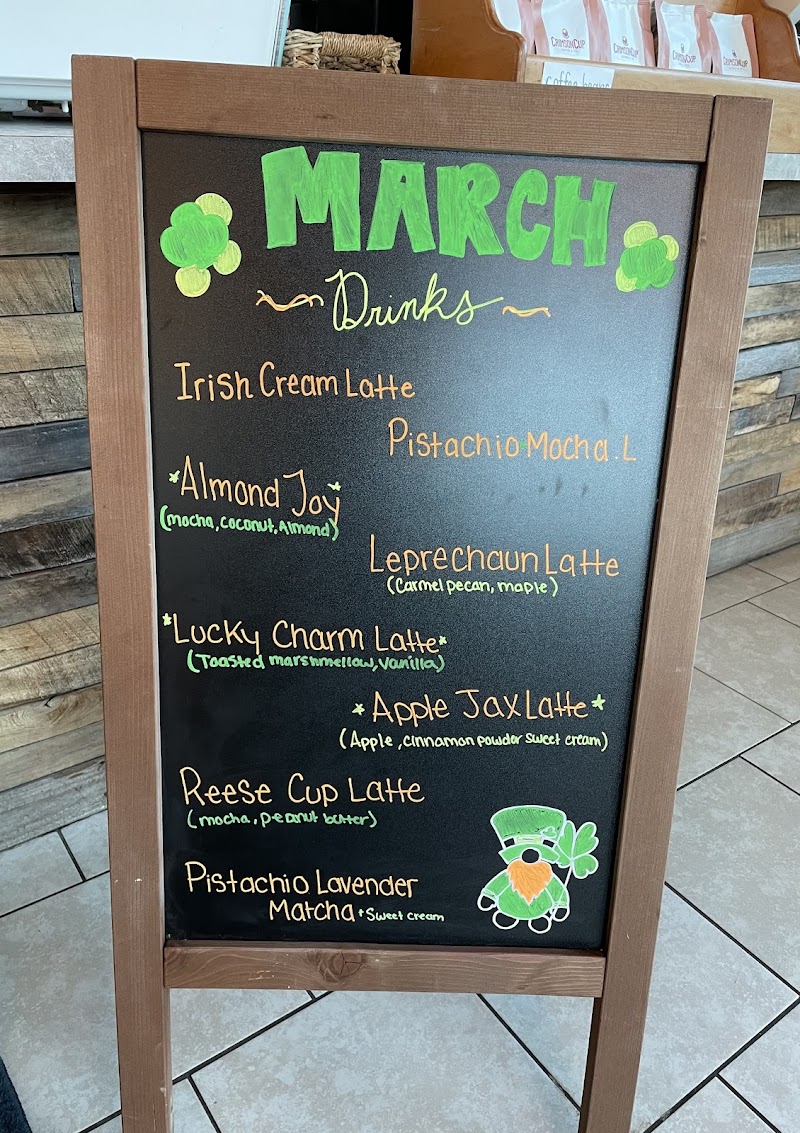 CRIMSON CUP
CRIMSON CUP
CRIMSON CUP
CRIMSON CUP
coffee beans
MARCH
Drinks
Irish Cream Latte
Pistachio Mocha. L
*Almond Joy*
(mocha, coconut, Almond)
Leprechaun Latte
(Carmel pecan, maple)
*Lucky Charm Latte*
(Toasted marshmellow, vanilla)
*Apple Jax Latte*
(Apple, cinnamon powder sweet cream)
Reese Cup Latte
(mocha, peanut butter)
Pistachio Lavender
Matcha + Sweet cream